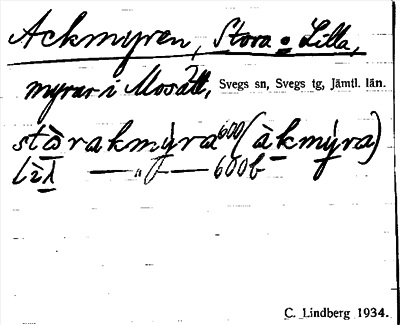 Ackmyren, Stora o Lilla,
myrar i Mosätt, Svegs sn, Svegs tg, Jämtl. län.
stòrakmỳra 600 (àkmỳra)
lìl —〃— 600b
C. Lindberg 1934.